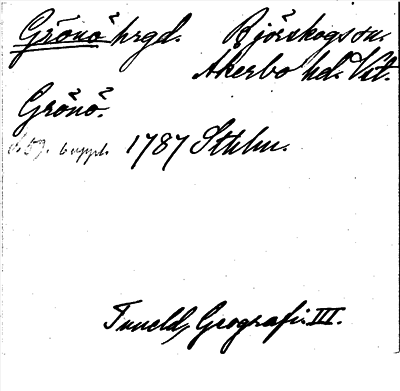 Grönö hrgd. Björskogs sn.
Åkerbo hd. Vtl.
Grönö.
s. 59. 6 uppl. 1787 Sthlm.
Tuneld, Geografi. III.